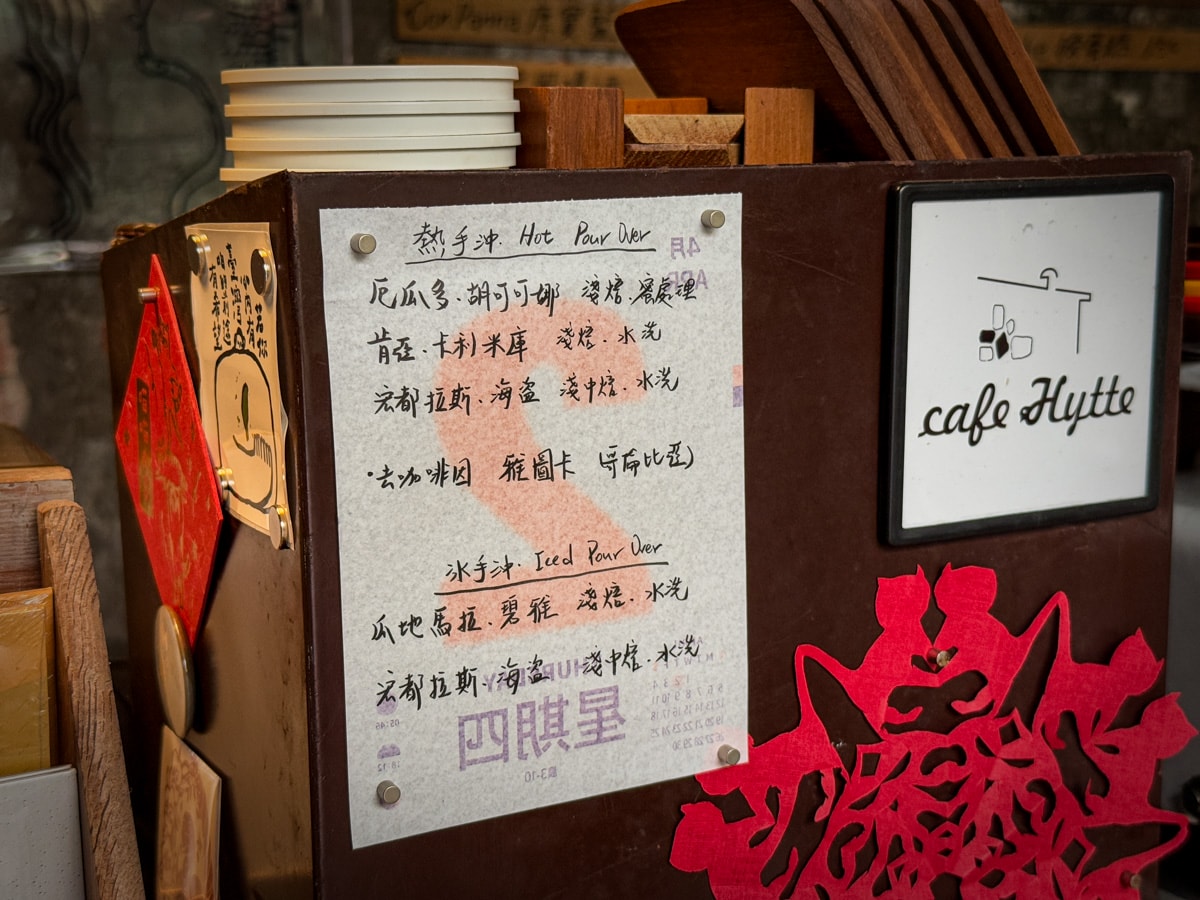 Con Panna
熱手沖. Hot Pour Over
厄瓜多.胡可可娜 淺焙.蜜處理
肯亞.卡利米庫 淺焙.水洗
宏都拉斯.海盜 淺中焙.水洗
去咖啡因 雅圖卡 (哥倫比亞)
冰手沖. Iced Pour Over
瓜地馬拉.碧雅 淺焙.水洗
宏都拉斯.海盜 淺中焙.水洗
4月
APR
2
THURSDAY
星期四
05:46
18:12
cafe Hytte
若你
心內有
臺灣
咱的到這
有希望